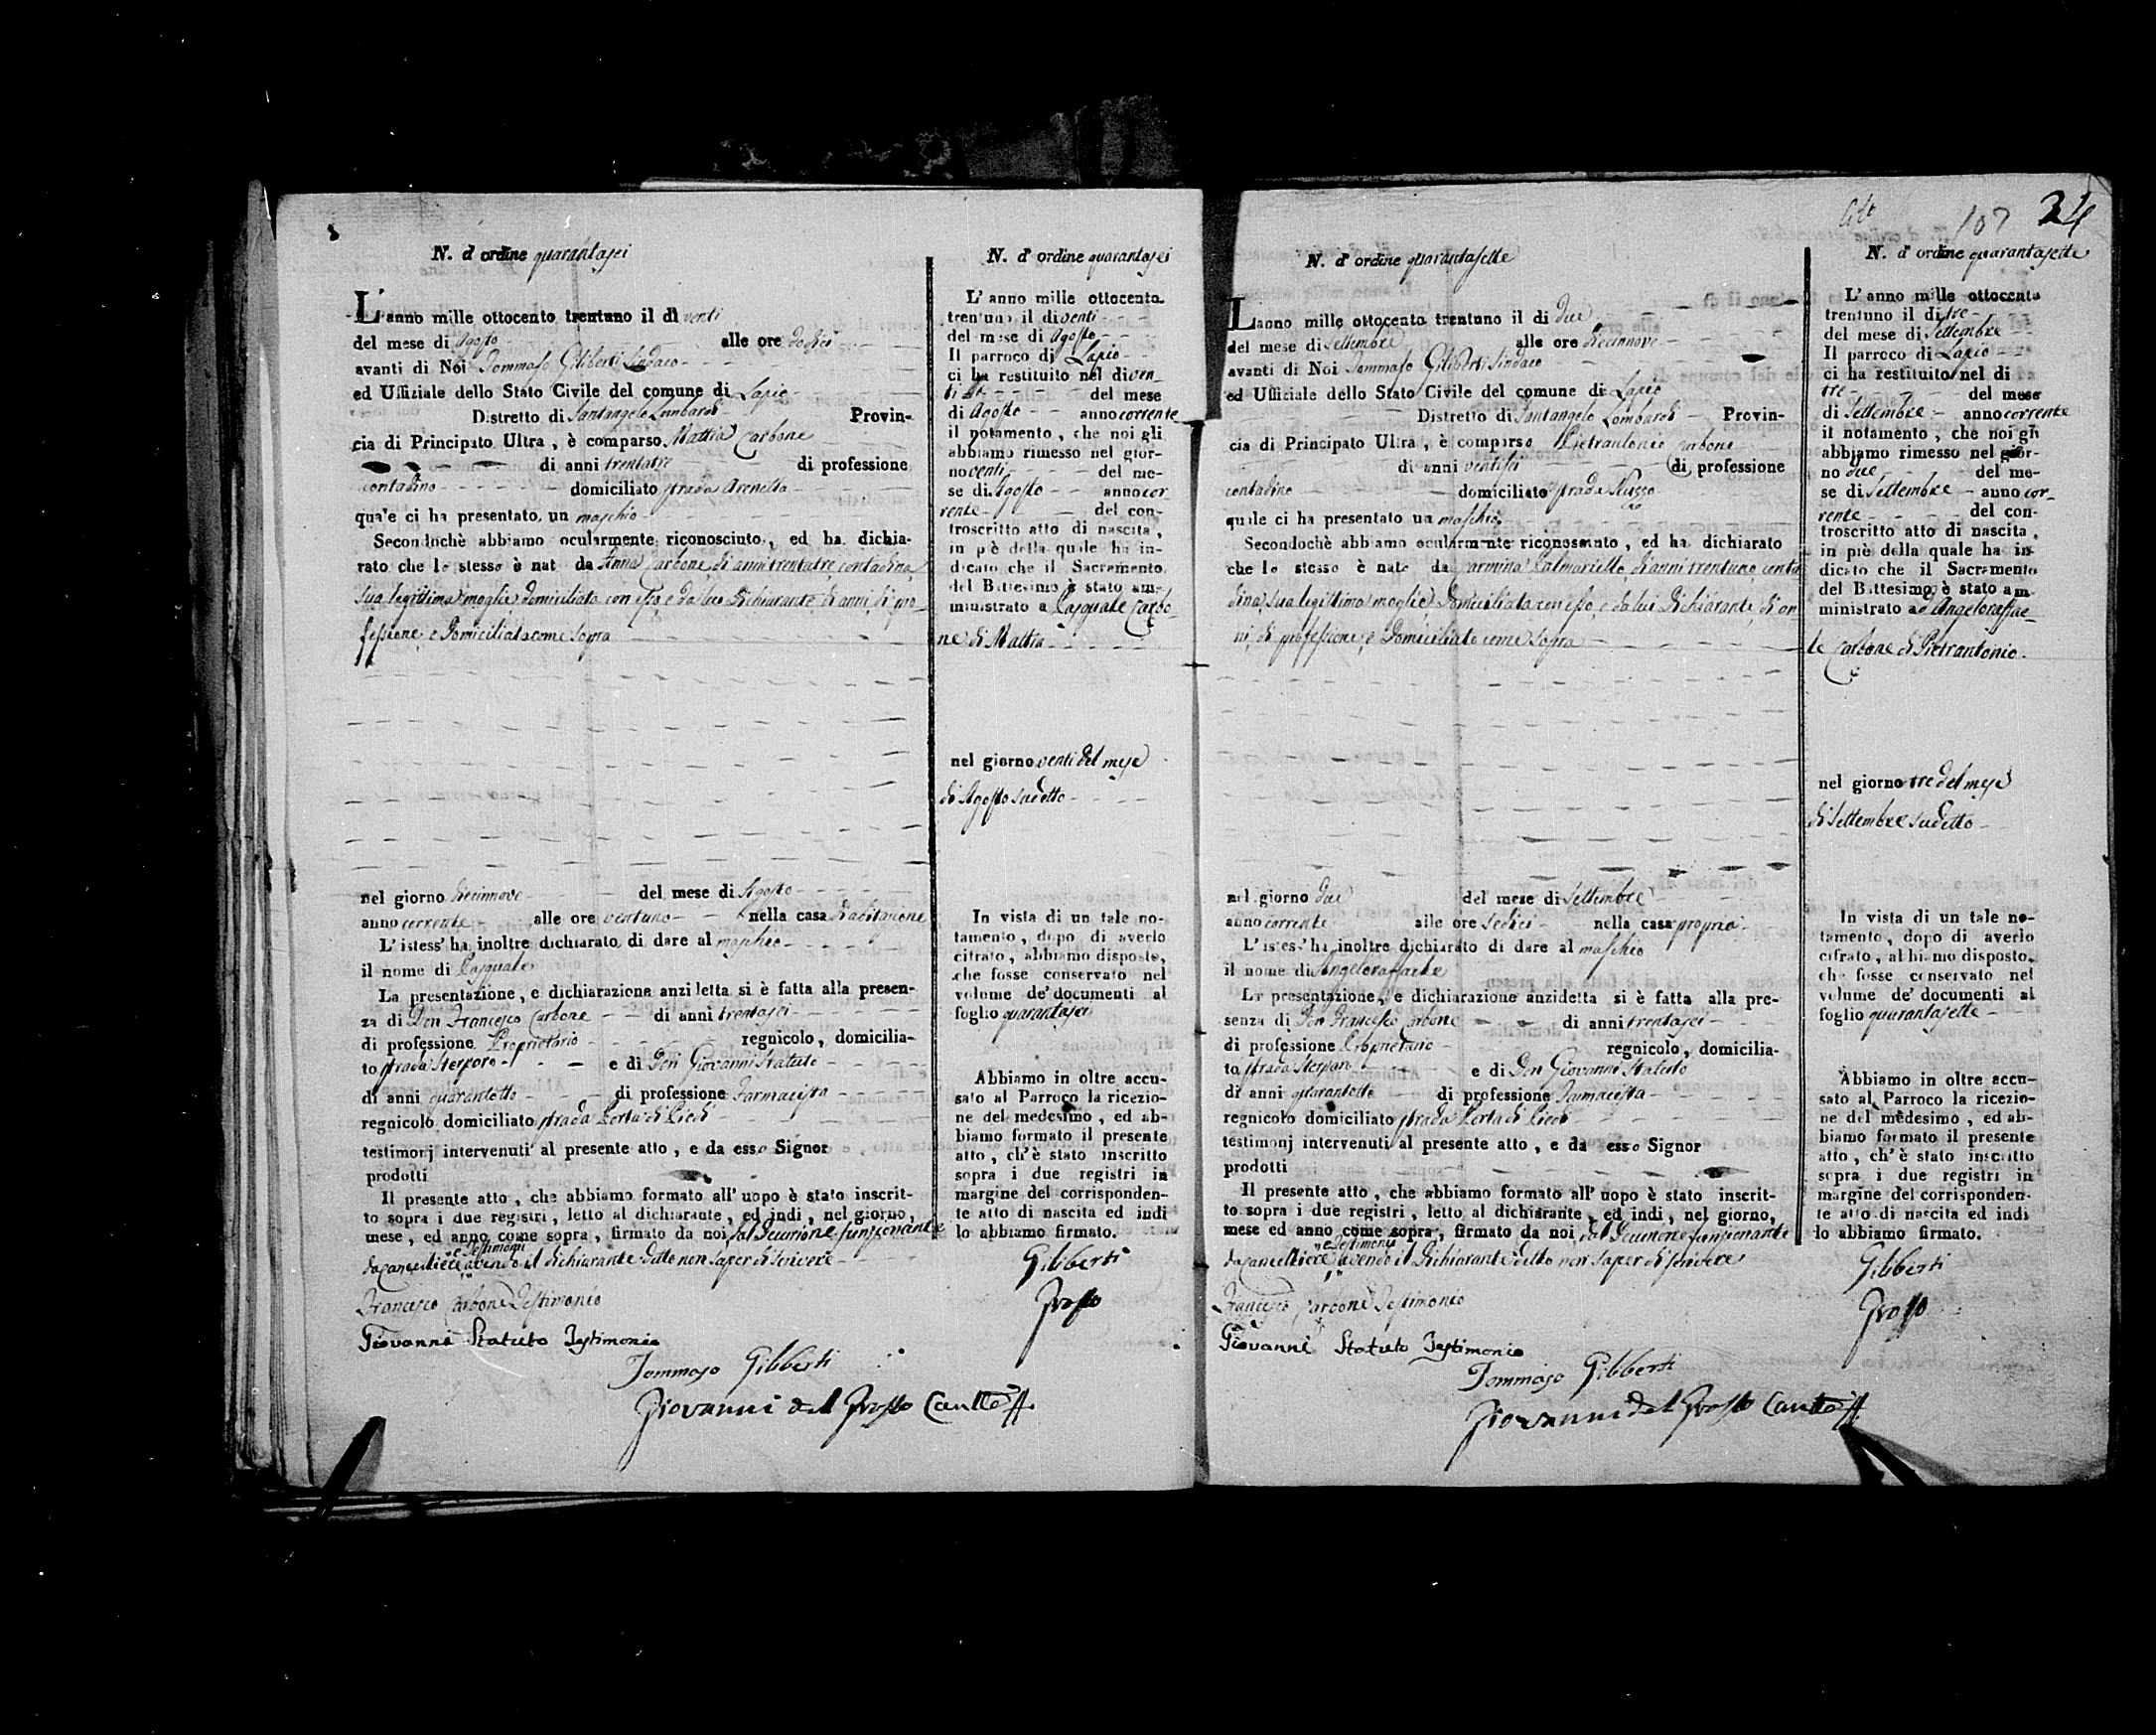 N. d'ordine quarantasei
L'anno mille ottocento trentuno il dì venti
del mese di Agosto alle ore dodici
avanti di Noi Tommaso Giliberti Sindaco
ed Uffiziale dello Stato Civile del comune di Lapio
Distretto di Santangelo Lombardi Provin-
cia di Principato Ultra, è comparso Mattia Carbone
di anni trentatre di professione
contadino domiciliato strada Arenella
quale ci ha presentato un maschio
Secondochè abbiamo ocularmente riconosciuto, ed ha dichia-
rato che lo stesso è nat da Anna Carbone, di anni trentatre, contadina,
sua legittima moglie, domiciliata con esso, e da lui dichiarante di anni di pro-
fessione, e domiciliata come sopra
nel giorno diecinnove del mese di Agosto
anno corrente alle ore ventuno nella casa d'abitazione
L'istess' ha inoltre dichiarato di dare al maschio
il nome di Pasquale
La presentazione, e dichiarazione anzidetta si è fatta alla presen-
za di Don Francesco Carbone di anni trentasei
di professione Proprietario regnicolo, domicilia-
to strada Sterparo e di Don Giovanni Statuto
di anni quarantotto di professione Farmacista
regnicolo domiciliato strada Porta di Piedi
testimonj intervenuti al presente atto, e da esso Signor
prodotti
Il presente atto, che abbiamo formato all'uopo è stato inscrit-
to sopra i due registri, letto al dichiarante, ed indi, nel giorno,
mese, ed anno come sopra, firmato da noi, dal Decurione funzionante
da Cancelliere, e Testimoni avendo il dichiarante detto non saper di scrivere
Francesco Carbone Testimonio
Giovanni Statuto Testimonio
Tommaso Giliberti
Giovanni del Grosso
N. d'ordine quarantasei
L'anno mille ottocento
trentuno il dì venti
del mese di Agosto
Il parroco di Lapio
ci ha restituito nel dì ven-
ti del mese
di Agosto anno corrente
il notamento, che noi gli
abbiamo rimesso nel gior-
no venti del me-
se di Agosto anno cor-
rente del con-
troscritto atto di nascita,
in piè della quale ha in-
dicato che il Sacramento
del Battesimo è stato am-
ministrato a Pasquale Carbo-
ne di Mattia
nel giorno venti del mese
di Agosto sudetto
In vista di un tale no-
tamento, dopo di averlo
cifrato, abbiamo disposto,
che fosse conservato nel
volume de' documenti al
foglio quarantasei
Abbiamo in oltre accu-
sato al Parroco la ricezio-
ne del medesimo, ed ab-
biamo formato il presente
atto, ch'è stato inscritto
sopra i due registri in
margine del corrisponden-
te atto di nascita ed indi
lo abbiamo firmato.
Giliberti
Grosso
107 24
N. d'ordine quarantasette
L'anno mille ottocento trentuno il dì due
del mese di Settembre alle ore diecinnove
avanti di Noi Tommaso Giliberti Sindaco
ed Uffiziale dello Stato Civile del comune di Lapio
Distretto di Santangelo Lombardi Provin-
cia di Principato Ultra, è comparso Pietrantonio Carbone
di anni ventisei di professione
contadino domiciliato strada
quale ci ha presentato un maschio
Secondochè abbiamo ocularmente riconosciuto, ed ha dichiarato
che lo stesso è nato da Carmina Calmariello, di anni trentuno, conta
dina, sua legittima moglie, domiciliata con esso, e da lui dichiarante, di an
ni, di professione, e domiciliato come sopra
nel giorno due del mese di Settembre
anno corrente alle ore sedici nella casa propria
L'istess' ha inoltre dichiarato di dare al maschio
il nome di Angeloraffaele
La presentazione, e dichiarazione anzidetta si è fatta alla pre-
senza di Don Francesco Carbone di anni trentasei
di professione Proprietario regnicolo, domicilia-
to strada Sterparo e di Don Giovanni Statuto
di anni quarantotto di professione Farmacista
regnicolo domiciliato strada Porta di Piedi
testimonj intervenuti al presente atto, e da esso Signor
prodotti
Il presente atto, che abbiamo formato all'uopo è stato inscrit-
to sopra i due registri, letto al dichiarante, ed indi, nel giorno,
mese ed anno come sopra, firmato da noi, dal Decurione funzionante
da Cancelliere, e Testimoni avendo il dichiarante detto non saper di scrivere
Francesco Carbone Testimonio
Giovanni Statuto Testimonio
Tommaso Giliberti
Giovanni del Grosso
N. d'ordine quarantasette
L'anno mille ottocento
trentuno il dì tre
del mese di Settembre
Il parroco di Lapio
ci ha restituito nel dì
tre del mese
di Settembre anno corrente
il notamento, che noi gli
abbiamo rimesso nel gior-
no due del me-
se di Settembre anno cor-
rente del con-
troscritto atto di nascita,
in piè della quale ha in
dicato che il Sacramento
del Battesimo è stato am
ministrato ad Angeloraffae-
le Carbone di Pietrantonio.
nel giorno tre del mese
di Settembre sudetto
In vista di un tale no-
tamento, dopo di averlo
cifrato, abbiamo disposto,
che fosse conservato nel
volume de' documenti al
foglio quarantasette
Abbiamo in oltre accu-
sato al Parroco la ricezio-
ne del medesimo, ed ab-
biamo formato il presente
atto, ch'è stato inscritto
sopra i due registri in
margine del corrisponden-
te atto di nascita ed indi
lo abbiamo firmato.
Giliberti
Grosso